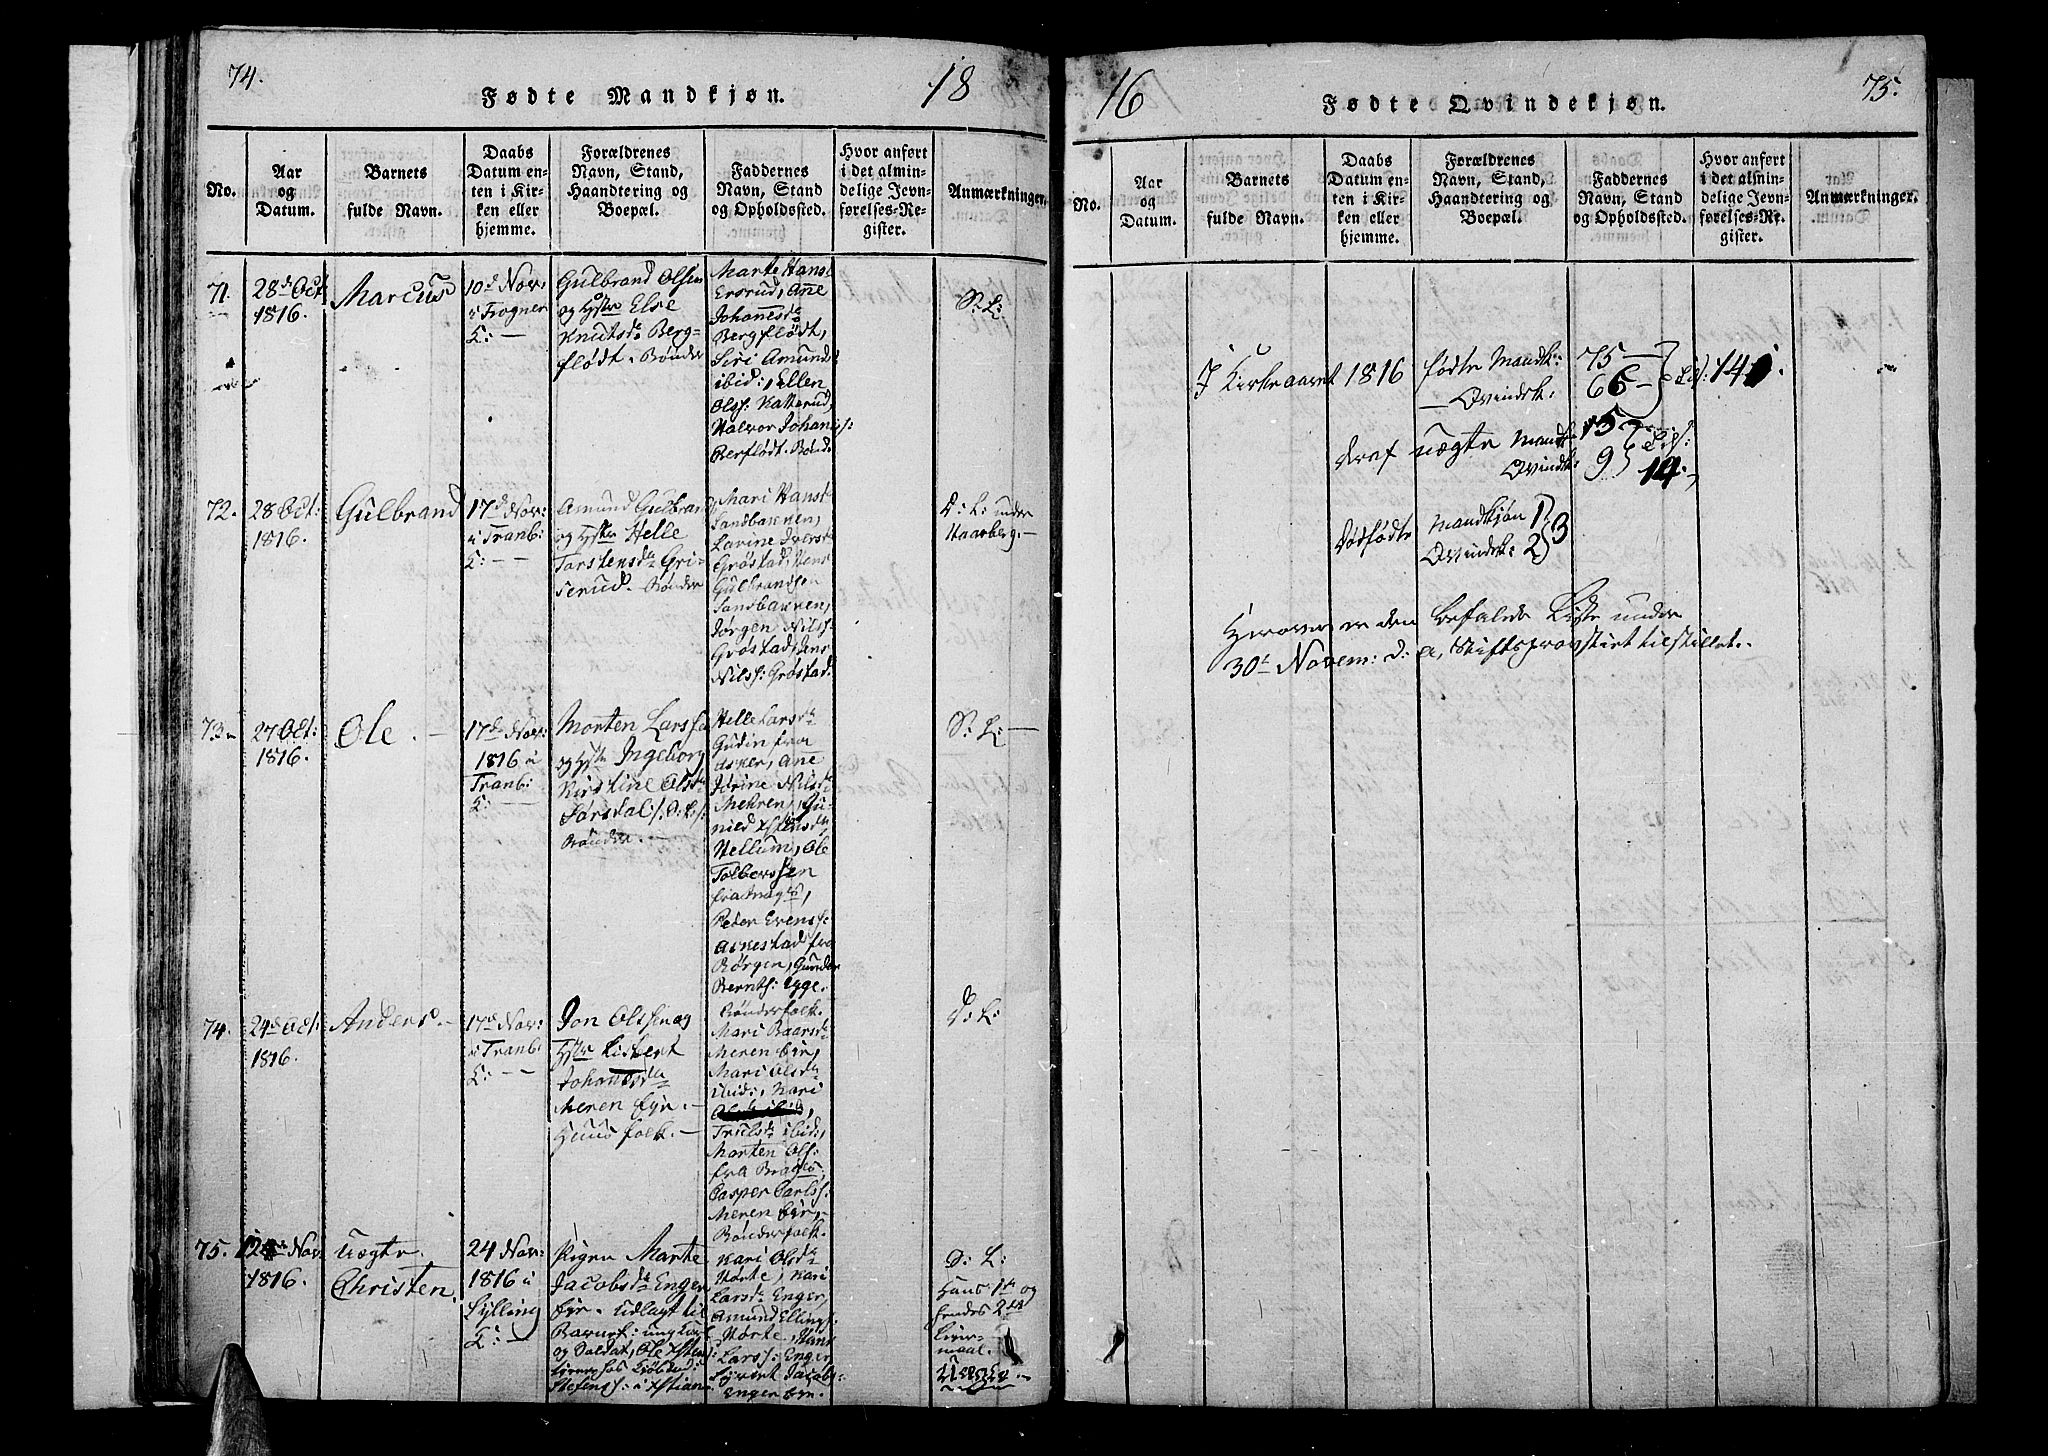 74.
Fødte Mandkjøn.
18
No.
Aar
og
Datum.
Barnets
fulde Navn.
Daabs
Datum en-
ten i Kir-
ken eller
hjemme.
Forældrenes
Navn, Stand,
Haandtering og
Boepæl.
Faddernes
Navn, Stand
og Opholdssted.
Hvor anført
i det almin-
delige Jevn-
førelses-Re-
gister.
Anmærkninger.
71.
28de Oct
1816.
Marcus
10de Nov:
i Frogner
K:
Gulbrand Olsen
og Hstr Else
Knutsda Berg-
flødt. Bønder
Marte Hansd
Ersrud, Ane
Johanesda
Bergflødt,
Siri Amunds
ibid:, Ellen
Olss: Katterud,
Halvor Johaness:
Berflødt. Bønd.
S: L:
72.
28 Oct:
1816.
Gulbrand
17de Nov:
i Tranb:
K:
Amund Gulbrands
og Hstr Helle
Torstensda Gri-
serud. Bønder
Mari Hansd
Sandbakken,
Lavine Iversd
Grøstad, Hans
Gulbrandsen
Sandbakken,
Jørgen Nilss:
Grøstad, Hans
Nilss: Grøstad.
D: L: under
Haarberg.
73.
27 Oct:
1816.
Ole.
17de Nov:
1816 i
Tranb:
K:
Morten Larssen
og Hstr Ingeborg
Kirstine Olsda
Sørsdal
Bønder.
Helle Larsda
Gudin fra
Asker, Ane
Jorine Nilsd
Mehren, Gu-
nild Hstensda
Hellum, Ole
Tolberssen
fra
Peder Evenss:
Askestad fra
Børgen, Gunder
Bernts: Egge.
Bønderfolk.
S: L:
74.
24de Oct:
1816.
Anders.
17de Nov:
i Tranb:
K:
Jon Olssen og
Hstr Lisbert
Johanesda
Meren Eje.
Huusfolk.
Mari Baarsda
Meren Eje,
Mari Olsda
ibid:, Kari
Trulsda ibid:,
Morten Ols:
fra Bragnes,
Casper Carlss:
Meren Eje,
Bønderfolk.
D: L:
75.
Nov
1816.
Uægte
Christen.
24 Nov:
1816 i
Sylling
K:
Pigen Marte
Jacobsda Enger
Eje. Udlagt til
Barnef: ung Karl
og Soldat, Ole
Kari Olsda
Hørte, Kari
Larsda Enger,
Amund Ellings:
Hørte, Hans
Larss: Enger,
Syvert Jacobs:
Enger Eje.
S: L:
Hans 1te og
hendes 2de
Leier-
maal.
16
Fødte Qvindekjøn.
75.
No.
Aar
og
Datum.
Barnets
fulde Navn.
Daabs
Datum en-
ten i Kir-
ken eller
hjemme.
Forældrenes
Navn, Stand,
Haandtering og
Boepæl.
Faddernes
Navn, Stand
og Opholdssted.
Hvor anført
i det almin-
delige Jevn-
førelses-Re-
gister.
Anmærkninger.
I Kirkeaaret 1816 fødte Mandk: 75
Qvindek: 66
deraf uægte Mandk: 5
Qvindk: 9
14.
Dødfødte Mandkjøn 1
Qvindek: 2
3
Herover er den befalede Liste under
30te Novem: d: a, Stiftsprovstiet tilstillet.